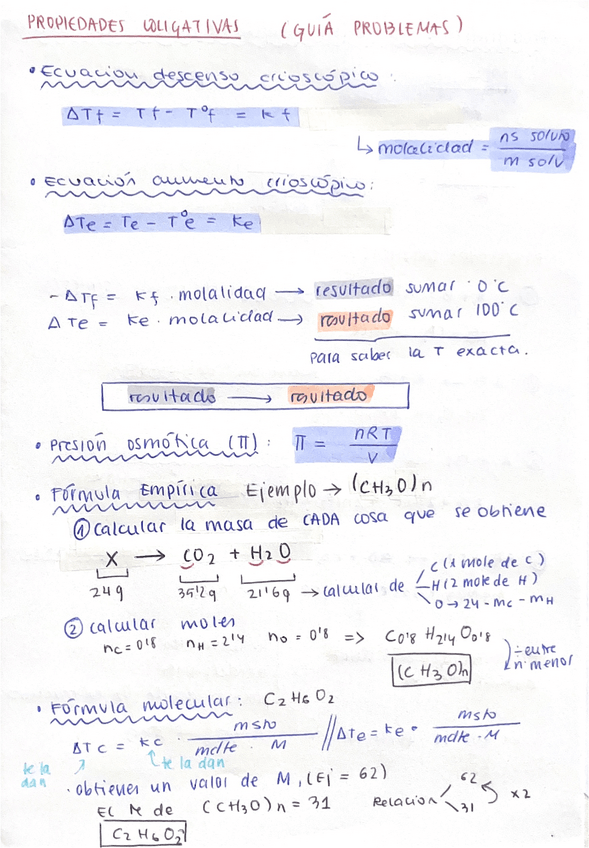 PROPIEDADES COLIGATIVAS (GUÍA PROBLEMAS)
• Ecuacion descenso crioscópico:
ΔTf = Tf - T°f = kf
↳ molalidad = ns soluto / m solv
• Ecuación aumento crioscópico:
ΔTe = Te - T°e = Ke
- ΔTf = Kf . molalidad → resultado sumar 0°C
ΔTe = Ke . molalidad → resultado sumar 100°C
para saber la T exacta.
resultado → resultado
• Presión osmótica (Π): Π = nRT / V
• Fórmula Empírica Ejemplo → (CH3O)n
① calcular la masa de CADA cosa que se obtiene
X → CO2 + H2O
24g 35'2g 21'6g → calcular de C (1 mole de C)
H (2 mole de H)
O → 24 - mc - mH
② calcular moles
nc = 0'8 nH = 2'4 no = 0'8 => C0'8 H2'4 O0'8
(CH3O)n
÷ entre n. menor
• Fórmula molecular: C2H6O2
ΔTc = kc . msto / mdte . M // ΔTe = ke . msto / mdte . M
te la dan
te la dan
• obtienes un valor de M, (Ej = 62)
El M de (CH3O)n = 31 Relacion 62 31 x2
C2H6O2